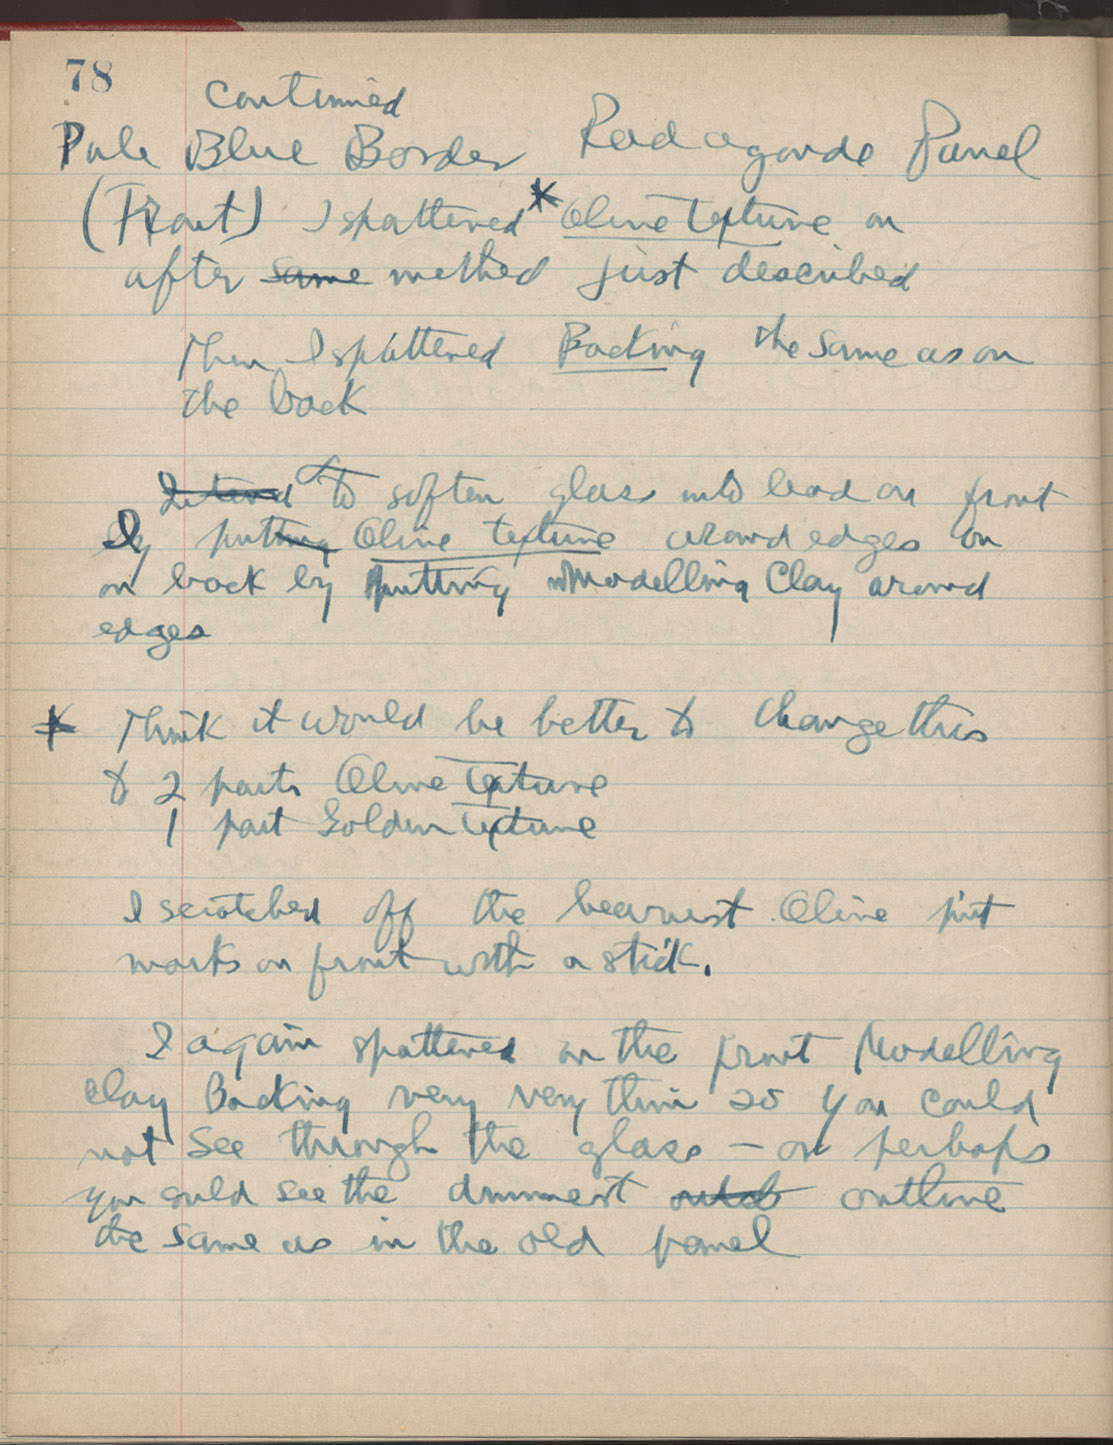 78
continued
Pale Blue Border Radagonde Panel
(Front) I spattered * Olive Texture on
after same method just described
Then I spattered Backing the same as on
the back
Intend to soften glass into lead on front
by putting Olive texture around edges on
on back by putting Modelling Clay around
edges
* Think it would be better to change this
to 2 parts Olive Texture
1 part Golden Texture
I scratched off the heaviest Olive
marks on front with a stick.
I again spattered on the front Modelling
Clay Backing very very thin so you could
not see through the glass — or perhaps
you could see the dimmest outline
the same as in the old panel